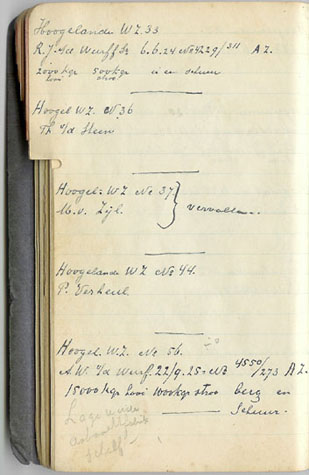 Hoogelande WZ. 33
R.J. v/d Werff Sr 6.6.24 No 4229/311 AZ.
2000 kgr hooi 500 kgr stroo in een schuur
Hoogel WZ. No. 36
Th v/d Steen
Hoogel: WZ No 37
M. v. Zijl. } vervallen.
Hoogelande WZ No 44.
P. Verheul
Hoogel. W.Z. No 56.
A.W. v/d Werf. 22/9.25. No 4550/273 AZ.
15000 kgr hooi 1000 kgr stroo berg en
schuur.